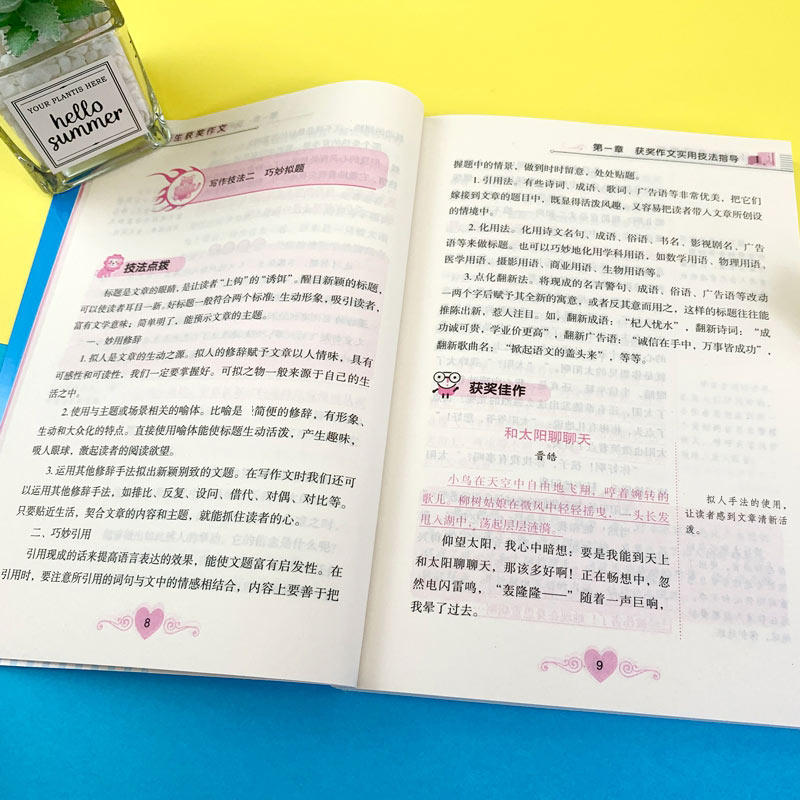 YOUR PLANT IS HERE
hello
summer
生获奖作文
写作技法二 巧妙拟题
技法点拨
标题是文章的眼睛，是让读者“上钩”的“诱饵”。醒目新颖的标题，
可以使读者耳目一新。好标题一般符合两个标准：生动形象，吸引读者，
富有文学意味；简单明了，能预示文章的主题。
一、妙用修辞
1. 拟人是文章的生动之源。拟人的修辞赋予文章以人情味，具有
可感性和可读性，我们一定要掌握好。可拟之物一般来源于自己的生
活之中。
2. 使用与主题或场景相关的喻体。比喻是最简便的修辞，有形象、
生动和大众化的特点。直接使用喻体能使标题生动活泼，产生趣味，
吸人眼球，激起读者的阅读欲望。
3. 运用其他修辞手法拟出新颖别致的文题。在写作文时我们还可
以运用其他修辞手法，如排比、反复、设问、借代、对偶、对比等。
只要贴近生活，契合文章的内容和主题，就能抓住读者的心。
二、巧妙引用
引用现成的话来提高语言表达的效果，能使文题富有启发性。在
引用时，要注意所引用的词句与文中的情感相结合，内容上要善于把
8
第一章 获奖作文实用技法指导
握题中的情景，做到时时留意，处处贴题。
1. 引用法。有些诗词、成语、歌词、广告语等非常优美，把它们
嫁接到文章的题目中，既显得活泼风趣，又容易把读者带入文章所创设
的情境中。
2. 化用法。化用诗文名句、成语、俗语、书名、影视剧名、广告
语等来做标题。也可以巧妙地化用学科用语，如数学用语、物理用语、
医学用语、摄影用语、商业用语、生物用语等。
3. 点化翻新法。将现成的名言警句、成语、俗语、广告语等改动
一两个字后赋予其全新的寓意，或者反其意而用之，这样的标题往往能
推陈出新，惹人注目。如，翻新成语：“杞人忧水”，翻新诗词：“成
功诚可贵，学业价更高”，翻新广告语：“诚信在手中，万事皆成功”，
翻新歌曲名：“掀起语文的盖头来”，等等。
获奖佳作
和太阳聊聊天
晋皓
小鸟在天空中自由地飞翔，哼着婉转的
歌儿，柳树姑娘在微风中轻轻摇曳，一头长发
甩入湖中，荡起层层涟漪。
仰望太阳，我心中暗想：要是我能到天上
和太阳聊聊天，那该多好啊！正在畅想中，忽
然电闪雷鸣，“轰隆隆——”随着一声巨响，
我晕了过去。
拟人手法的使用，
让读者感到文章清新活
泼。
9